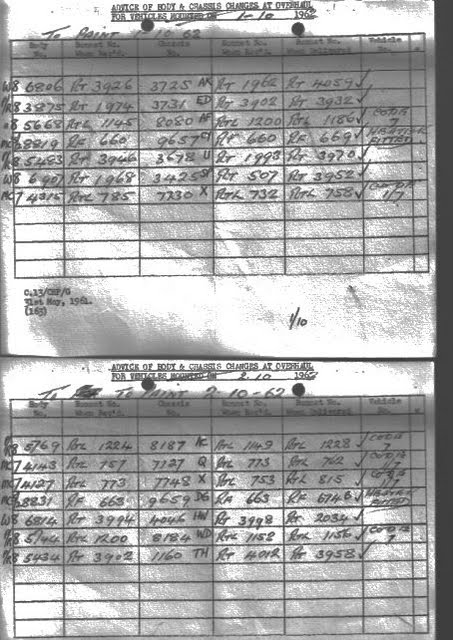 ADVICE OF BODY & CHASSIS CHANGES AT OVERHAUL
FOR VEHICLES MOUNTED ON 1-10 1962
TO PAINT 1-10-62
Body No. Bonnet No. When Rec'd. Chassis No. Bonnet No. When Rec'd. Bonnet No. When Delivered Vehicle No.
W8 6806 RT 3926 3725 AK RT 1962 RT 4059 ✓
3875 RT 1974 3731 ED RT 3902 RT 3932 ✓
5668 RTL 1145 8080 AF RTL 1200 RTL 1186 ✓
8819 RF 660 9657 RF 660 RF 669 ✓ HEATERS FITTED
5483 RT 3946 3678 U RT 1993 RT 3970 ✓
W8 6907 RT 1968 3425 RT 507 RT 3952 ✓
4315 RTL 785 7730 X RTL 732 RTL 758 ✓ 1/7
C.13/CHF/G
31st May, 1961.
(163)
1/10
ADVICE OF BODY & CHASSIS CHANGES AT OVERHAUL
FOR VEHICLES MOUNTED ON 2-10 1962
TO PAINT 2-10-62
Body No. Bonnet No. When Rec'd. Chassis No. Bonnet No. When Rec'd. Bonnet No. When Delivered Vehicle No.
5769 RTL 1224 8187 RTL 1149 RTL 1228 ✓
4143 RTL 757 7727 Q RTL 773 RTL 762 ✓
4127 RTL 773 7748 X RTL 753 RTL 815 ✓
8831 RF 663 9659 DG RF 663 RF ✓
W8 6814 RT 3994 4046 HW RT 3998 RT 2034 ✓
5744 RTL 1200 8184 WD RTL 1158 RTL 1156 ✓
5434 RT 3902 1160 TH RT 4012 RT 3958 ✓